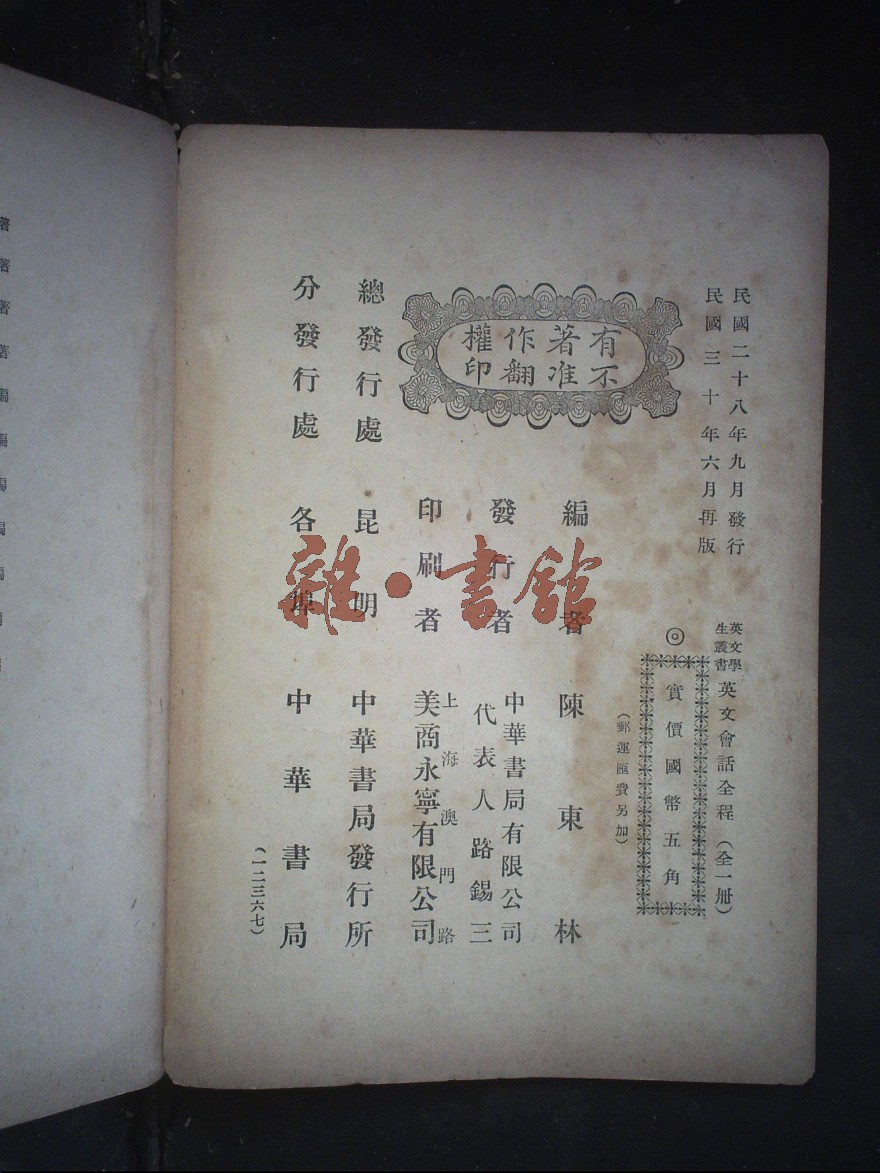 民國二十八年九月發行
民國三十年六月再版
英文學生叢書
英文會話全程（全一册）
◎實價國幣五角
（郵運匯費另加）
有著作權
不准翻印
編者 陳東林
發行者 中華書局有限公司
代表人路錫三
印刷者 上海澳門路
美商永寧有限公司
總發行處 昆明 中華書局發行所
分發行處 各埠 中華書局
（一二三六七）
雜·書館
著
著
著
著
編
編
編
編
編